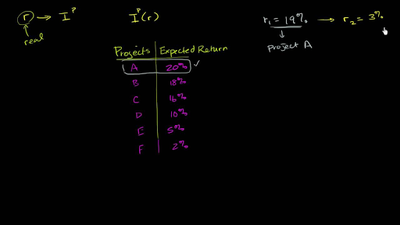 r → I^P I^P(r) r₁ = 19% → r₂ = 3%
real
Project A
Projects Expected Return
A 20% ✓
B 18%
C 16%
D 10%
E 5%
F 2%